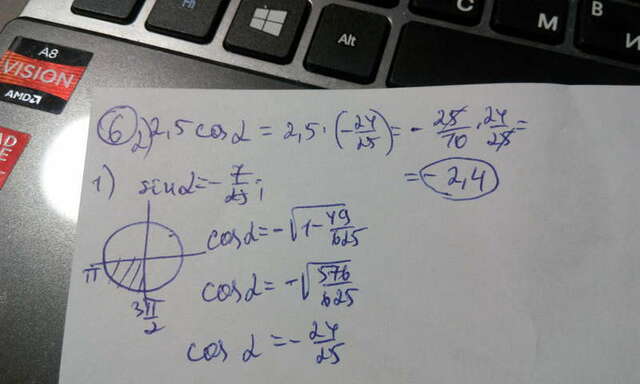 A8
VISION
AMD
Alt
М
В
И
6 2) 2,5 cos α = 2,5 · (-24/25) = - 25/10 · 24/25 =
= - 2,4
1) sin α = - 7/25;
cos α = - √(1 - 49/625)
π
3π/2
cos α = - √(576/625)
cos α = - 24/25